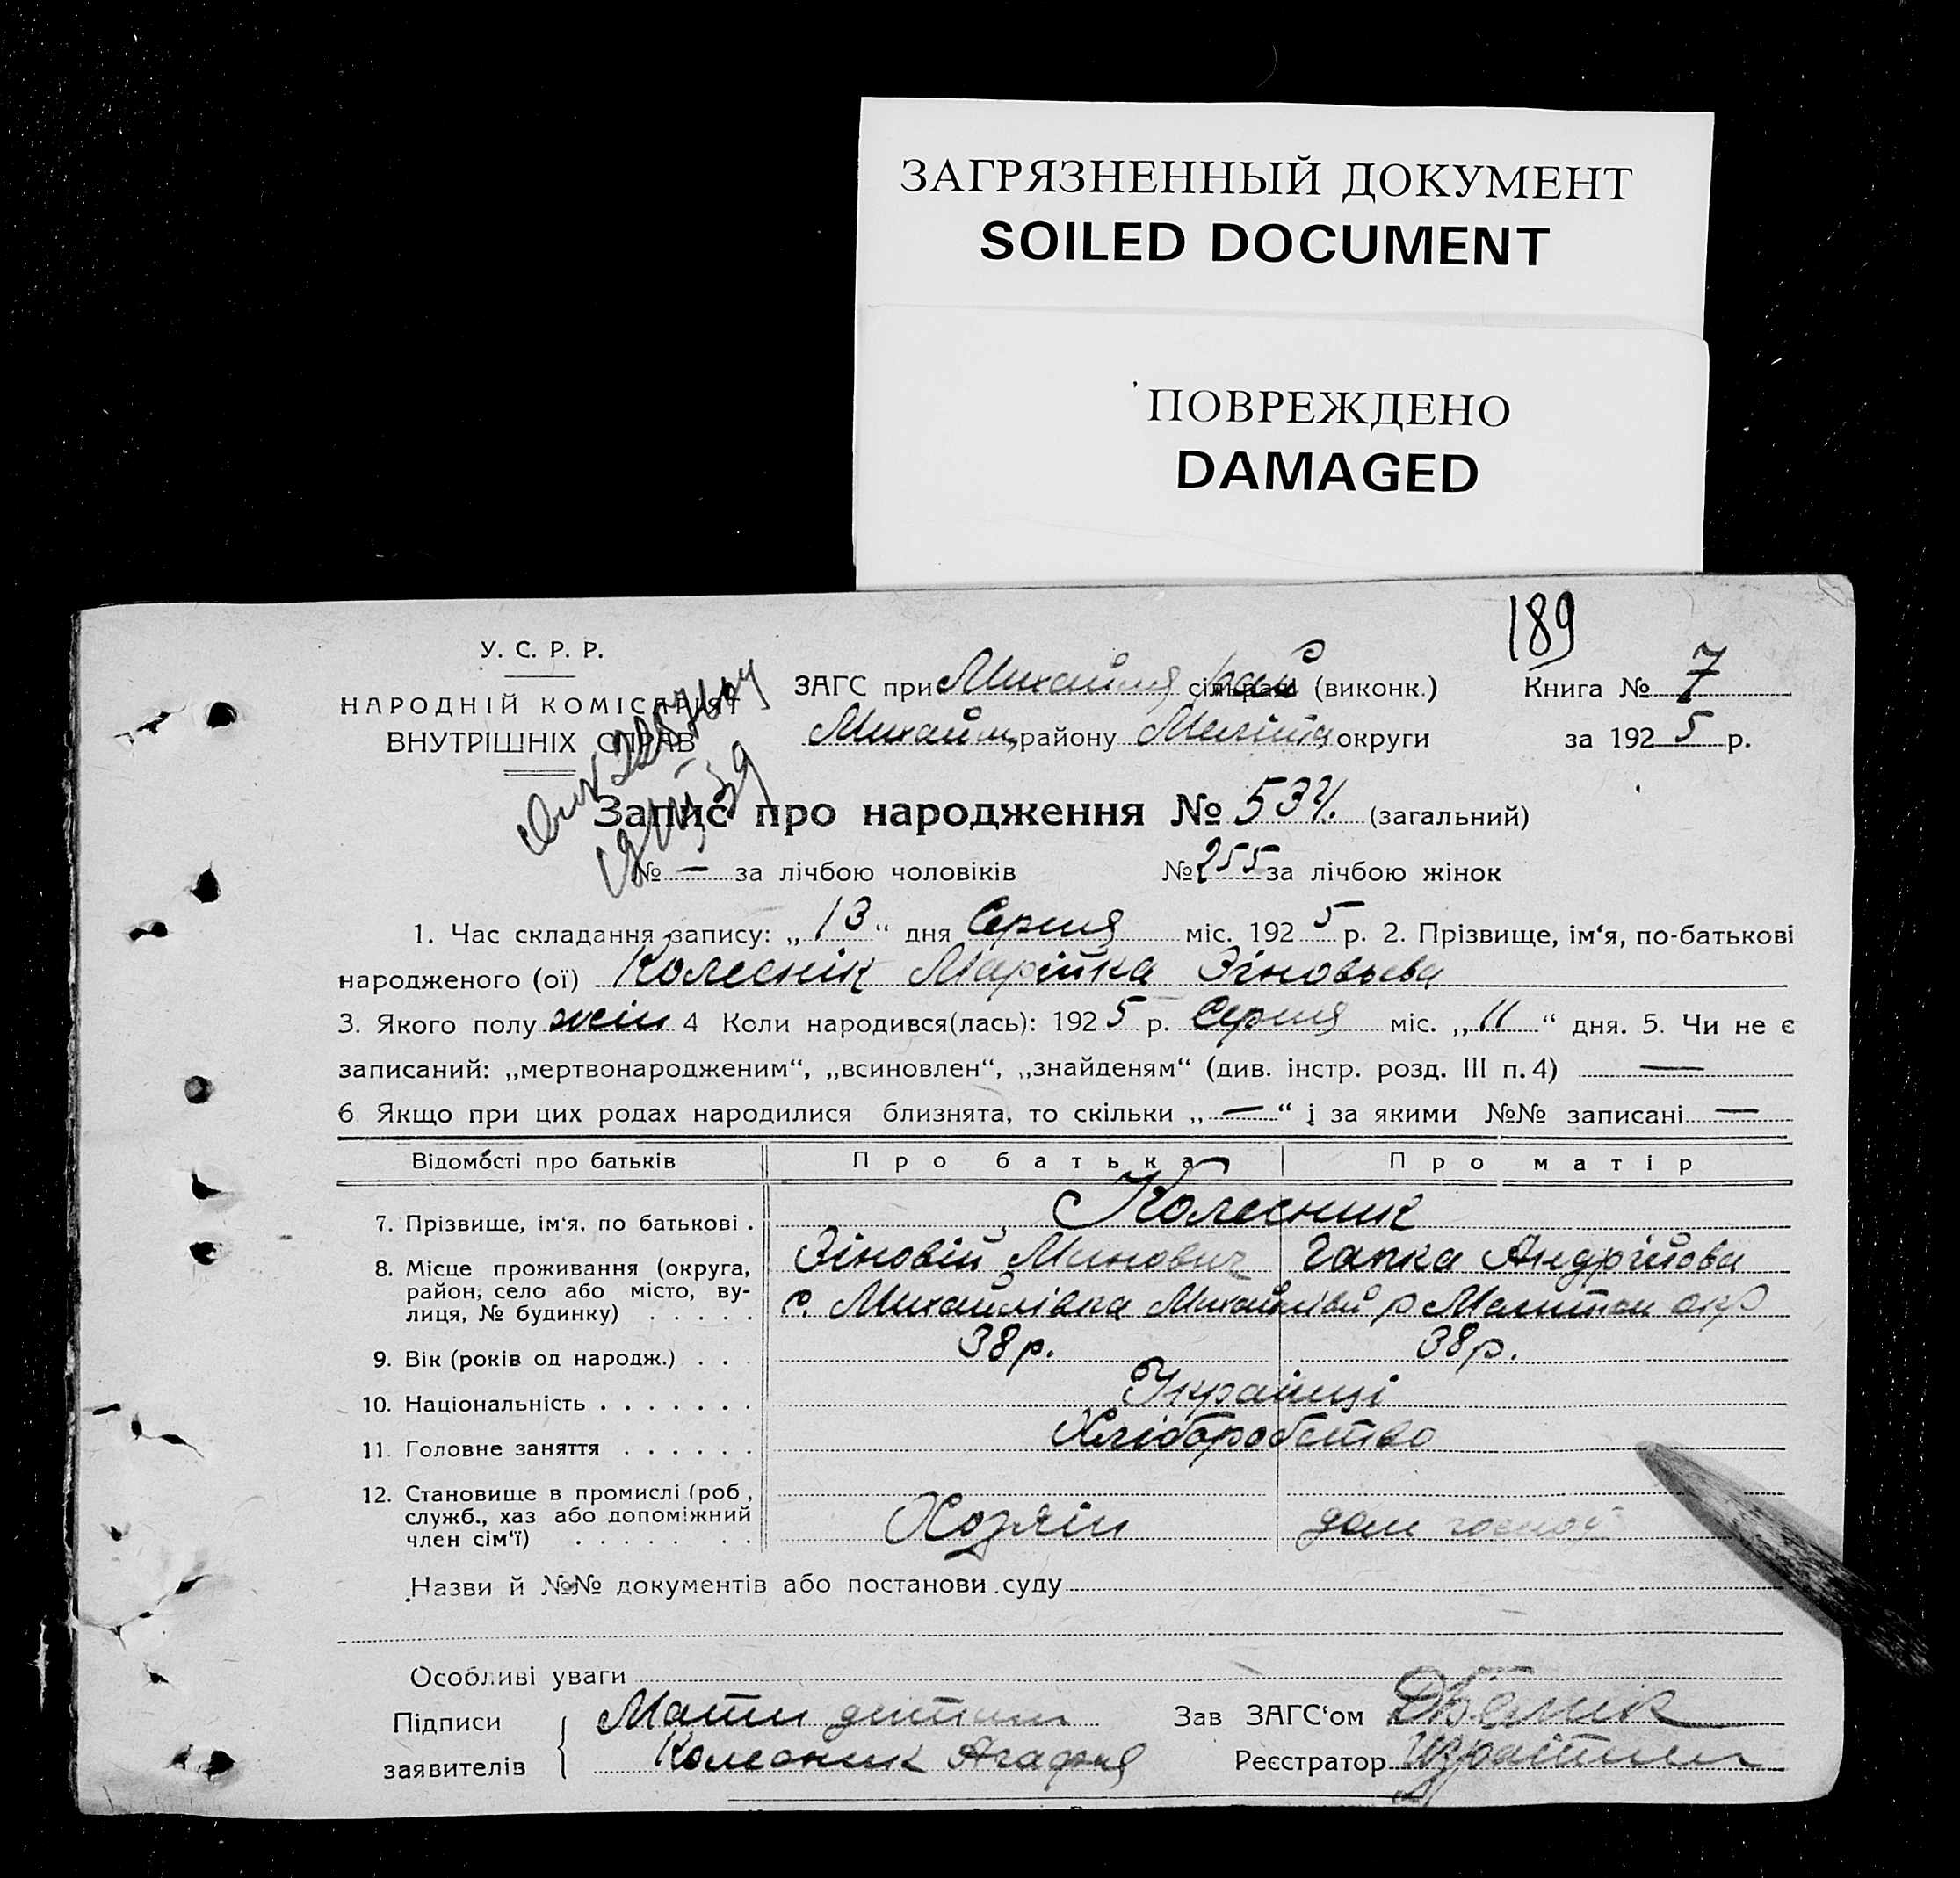 ЗАГРЯЗНЕННЫЙ ДОКУМЕНТ
SOILED DOCUMENT
ПОВРЕЖДЕНО
DAMAGED
189
У. С. Р. Р.
НАРОДНІЙ КОМІСАРІЯТ
ВНУТРІШНІХ СПРАВ
ЗАГС при сільраи (виконк.) Книга № 7
району округи за 1925 р.
Запис про народження № 534. (загальний)
№ — за лічбою чоловіків № 255 за лічбою жінок
1. Час складання запису: „13“ дня Серпня міс. 1925 р. 2. Прізвище, ім‘я, по-батькові
народженого (ої) Колеснік Марійка Зіновьева
3. Якого полу жін 4 Коли народився(лась): 1925 р. Серпня міс. „11“ дня. 5. Чи не є
записаний: „мертвонародженим“, „всиновлен“, „знайденям“ (див. інстр. розд. III п. 4) —
6 Якщо при цих родах народилися близнята, то скільки „—“ і за якими №№ записані —
Відомості про батьків Про батька Про матір
7. Прізвище, ім‘я, по батькові . Колесник
Зіновій Минович Гапка Андрійова
8. Місце проживання (округа, район, село або місто, ву-
лиця, № будинку) . . . . . с. Михайлівка р окр
9. Вік (років од народж.) . . . 38 р. 38 р.
10. Національність . . . . . . . Українці
11. Головне заняття . . . . . . Хліборобство
12. Становище в промислі (роб., служб., хаз або допоміжний
член сім‘ї) . . . . . . . Хозяін дом
Назви й №№ документів або постанови суду
Особливі уваги
Підписи Мати дитини Зав ЗАГС‘ом
заявителів Колесник Агафия Реєстратор